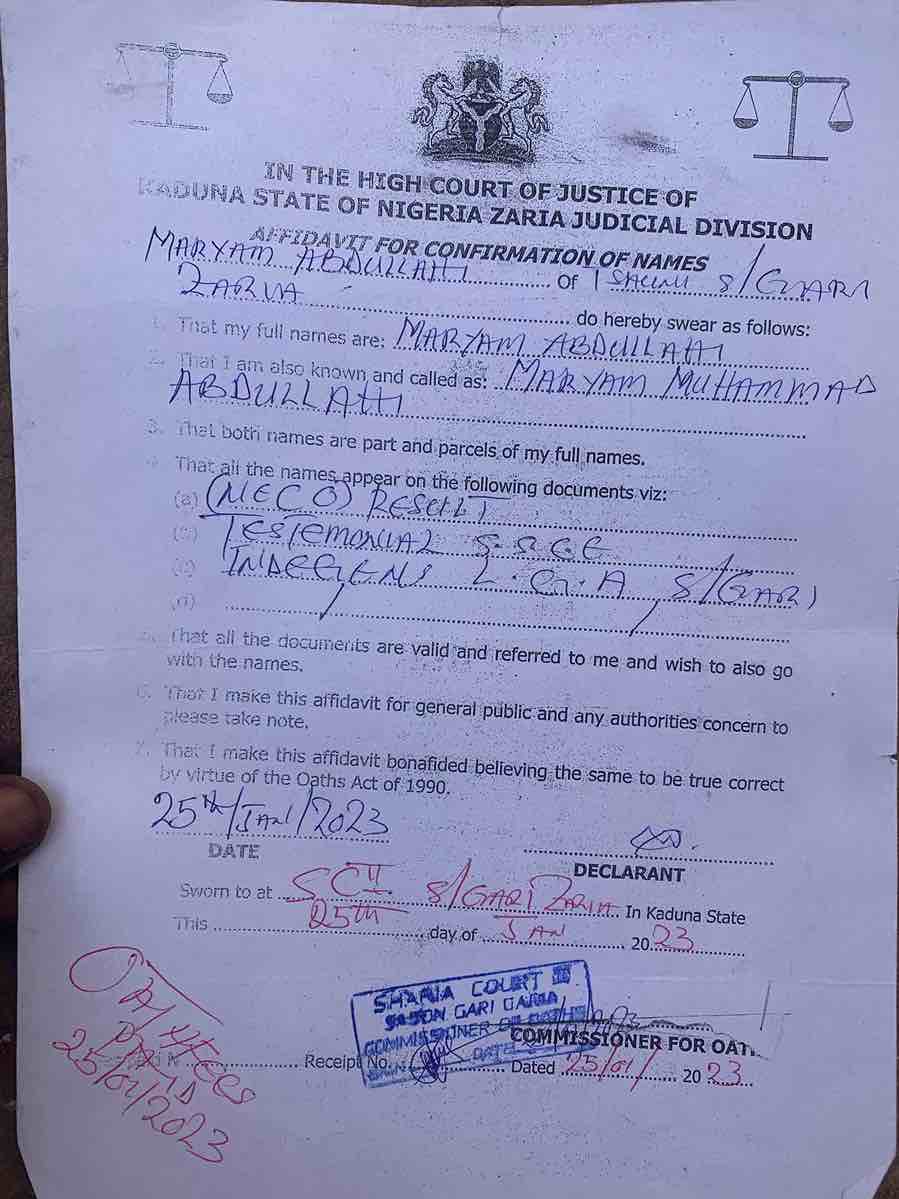 IN THE HIGH COURT OF JUSTICE OF
KADUNA STATE OF NIGERIA ZARIA JUDICIAL DIVISION
AFFIDAVIT FOR CONFIRMATION OF NAMES
MARYAM ABDULLAHI of S/GARI
ZARIA do hereby swear as follows:
1. That my full names are: MARYAM ABDULLAHI
2. That I am also known and called as: MARYAM MUHAMMAD
ABDULLAHI
3. That both names are part and parcels of my full names.
4. That all the names appear on the following documents viz:
(a) (NECO) RESULT
(b) TESTEMONIAL S.S.C.E
(c) INDEGENS L.G.A S/GARI
(d)
5. That all the documents are valid and referred to me and wish to also go
with the names.
6. That I make this affidavit for general public and any authorities concern to
please take note.
7. That I make this affidavit bonafided believing the same to be true correct
by virtue of the Oaths Act of 1990.
25th/JAN/2023
DATE
DECLARANT
Sworn to at SCII S/GARI ZARIA In Kaduna State
This 25th day of JAN 2023
SHARIA COURT II
SABON GARI ZARIA
COMMISSIONER OF OATHS
DATE
COMMISSIONER FOR OAT
Receipt No. Dated 25/01/ 2023
OATH FEES
PAID
25/01/2023